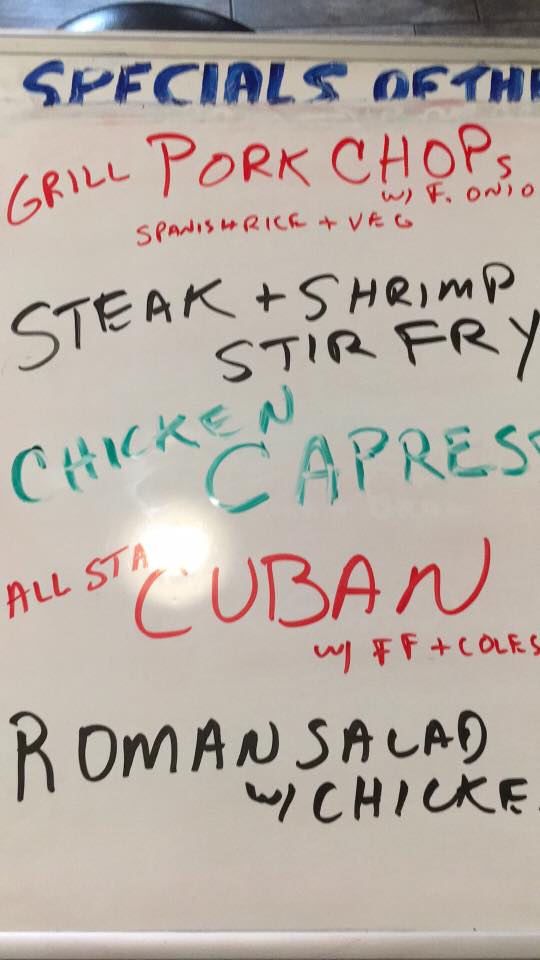 SPECIALS OF THE
GRILL PORK CHOPS
w/ F. ONIO
SPANISH RICE + VEG
STEAK + SHRIMP
STIR FRY
CHICKEN
CAPRES
ALL STA
CUBAN
w/ FF + COLES
ROMAN SALAD
w/ CHICKE